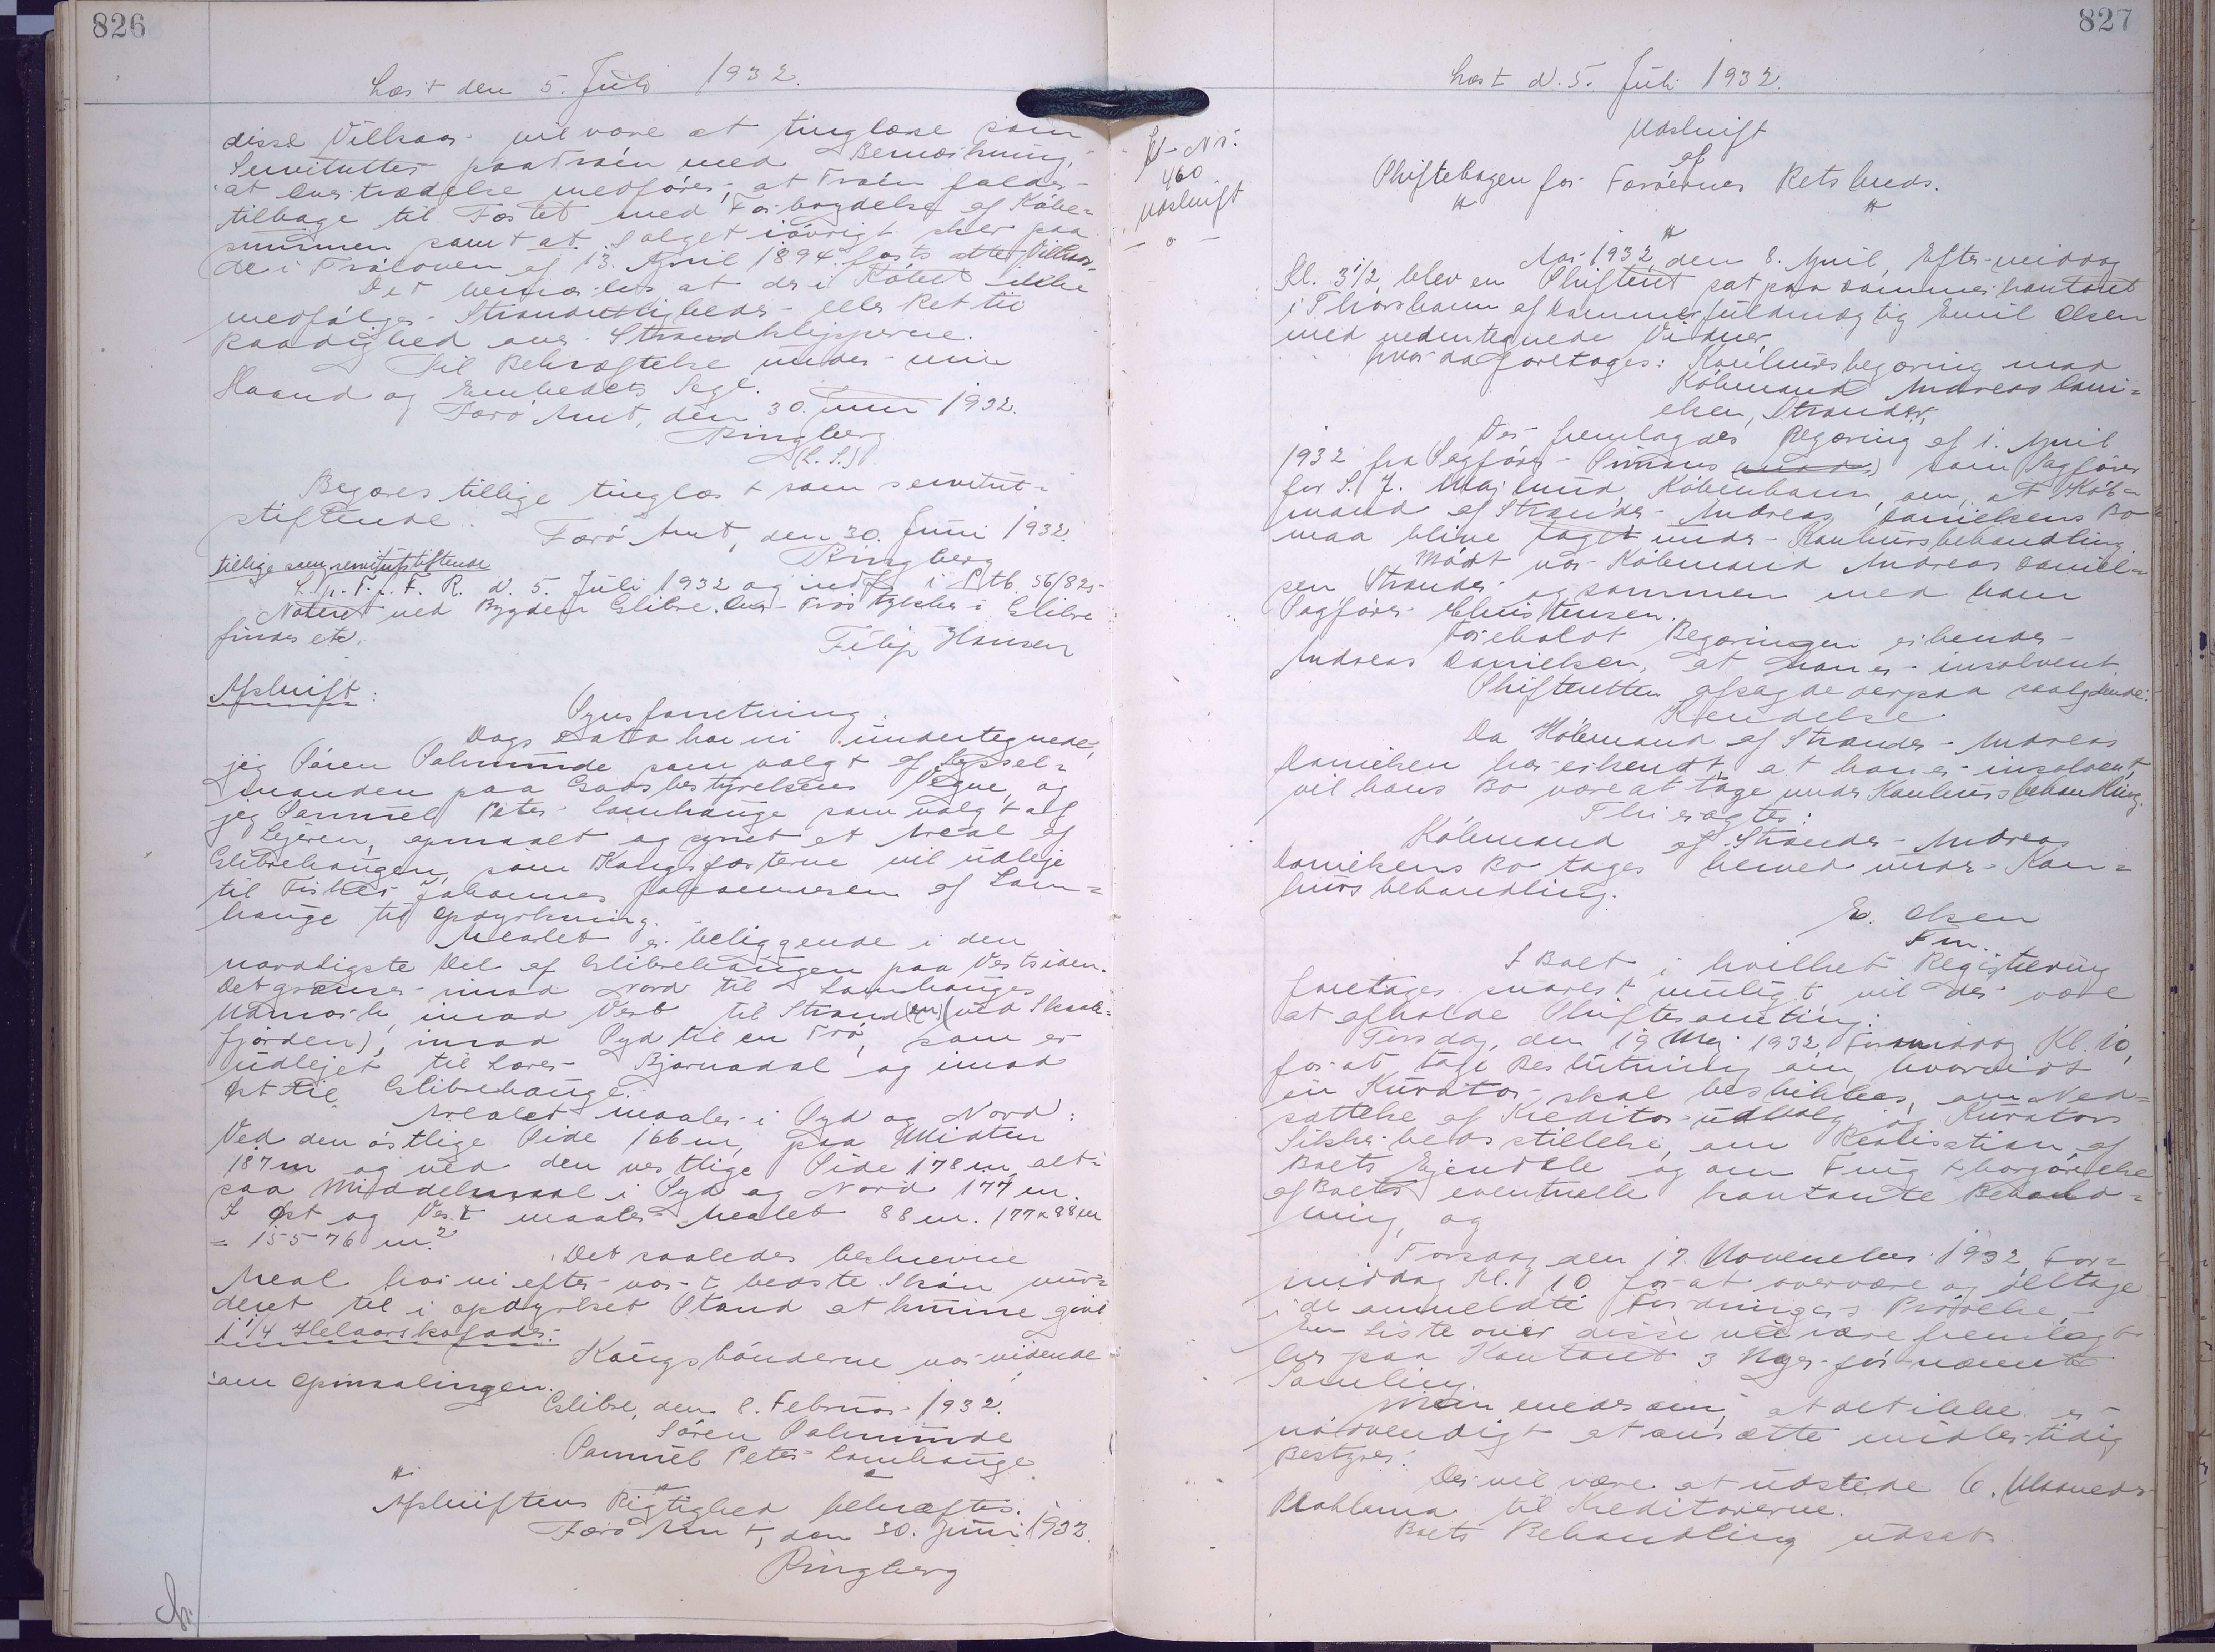 826
Læst den 5. Juli 1932.
disse Vilkaar vil være at tinglæse som
Servitutter paa Traen med Bemærkning,
at Overtrædelse medfører, at Traen falder
tilbage til Fæstet med Fortabelse af Købe=
summen samt at Salget iøvrigt sker paa
de i Traloven af 13. April 1894 fastsatte Vilkaar.
Det bemærkes at der i Købet ikke
medfølger Strandrettigheder eller Ret til
Raadighed over Strandklipperne.
Til Bekræftelse under min
Haand og Embedets Segl.
Færø Amt, den 30. Juni 1932.
Ringberg
(L. S.)
Begæres tillige tinglæst som servitut-
stiftende.
Færø Amt, den 30. Juni 1932.
Ringberg
tillige som servitutstiftende
L. p. T. f. F. R. d. 5. Juli 1932 og indf. i Stb. S6/825
Noteret ved Bygden Glibre. Over Trastykker i Glibre
findes etc.
Filip Hansen
Afskrift:
Synsforretning.
Dags Dato har vi undertegnede,
jeg Sören Palmunde som valgt af Syssel=
manden paa Godsbestyrelsens Vegne, og
jeg Samuel Peter Lamhauge som valgt af
Lejeren, opmaalt og synet et Areal af
Glibrehaugen, som Kongsfæsterne vil udleje
til Fisker Johannes Johannesen af Lam=
hauge til Opdyrkning.
Arealet er beliggende i den
nordligste Del af Glibrehaugen paa Vestsiden.
Det grænser imod Nord til Lamhauges
Udmark, imod Vest til Strand(en) (ved Skaale=
fjorden), imod Syd til en Trø, som er
udlejet til Lærer Bjarnadal og imod
Øst til Glibrehauge.
Arealet maaler i Syd og Nord:
Ved den østlige Side 166 m, paa Midten
187 m og ved den vestlige Side 178 m, alt=
saa Middelmaal i Syd og Nord 177 m.
I Øst og Vest maaler Arealet 88 m. 177 x 88 m
= 15576 m²
Det saaledes beskrevne
Areal har vi efter vort bedste Skøn vur=
deret til i opdyrket Stand at kunne give
1 1/4 Helaarskofoder.
Kongsbønderne var vidende
om Opmaalingen.
Glibre, den 8. Februar 1932.
Sören Palmunde
Samuel Peter Lamhauge
Afskriftens Rigtighed bekræftes.
Færø Amt, den 30. Juni 1932.
Ringberg
827
Læst d. 5. Juli 1932.
J-Nr.
460
Udskrift
- o -
Udskrift
af
Skiftebogen for Færøernes Retskreds.
Aar 1932 den 8. April, Eftermiddag
Kl. 3 1/2, blev en Skifteret sat paa Dommerkontoret
i Thorshavn af Dommerfuldmægtig Emil Olsen
med nedentegnede Vidner,
hvor da foretoges: Konkursbegæring mod
Købmand Andreas Dani=
elsen, Strander,
Der fremlagdes Begæring af 1. April
1932 fra Sagfører Simans som Sagfører
for S. J. Maj Lund, København, om, at Køb=
mand af Strander Andreas Danielsens Bo
maa blive taget under Konkursbehandling.
Mødt var Købmand Andreas Daniel=
sen Strander og sammen med ham
Sagfører Christensen.
Foreholdt Begæringen erkender
Andreas Danielsen, at han er insolvent.
Skifteretten afsagde derpaa saalydende:
Kendelse
Da Købmand af Strander Andreas
Danielsen har erkendt, at han er insolvent,
vil hans Bo være at tage under Konkursbehandling.
Thi eragtes:
Købmand af Strander Andreas
Danielsens Bo tages herved under Kon=
kursbehandling.
E. Olsen
Fm.
I Boet i hvilket Registrering
foretages snarest muligt, vil der være
at afholde Skiftesamling:
Torsdag, den 19 Maj 1932, Formiddag Kl. 10,
for at tage Beslutning om, hvorvidt
en Kurator skal beskikkes, om Ned=
sættelse af Kreditorudvalg og Kurators
Sikkerhedsstillelse, om Realisation af
Boets Ejendele og om Frugtbargørelse
af Boets eventuelle kontante Behold=
ning, og
Torsdag den 17. November 1932, For=
middag Kl. 10 for at overvære og deltage
i de anmeldte Fordringers Prøvelse,
En Liste over disse vil være fremlagt
her paa Kontoret 3 Uger før nævnte
Samling.
Man enedes om, at det ikke er
nødvendigt at ansætte midlertidig
Bestyrer.
Der vil være at udstede 6. Maaneders
Proklama til Kreditorerne.
Boets Behandling udsat